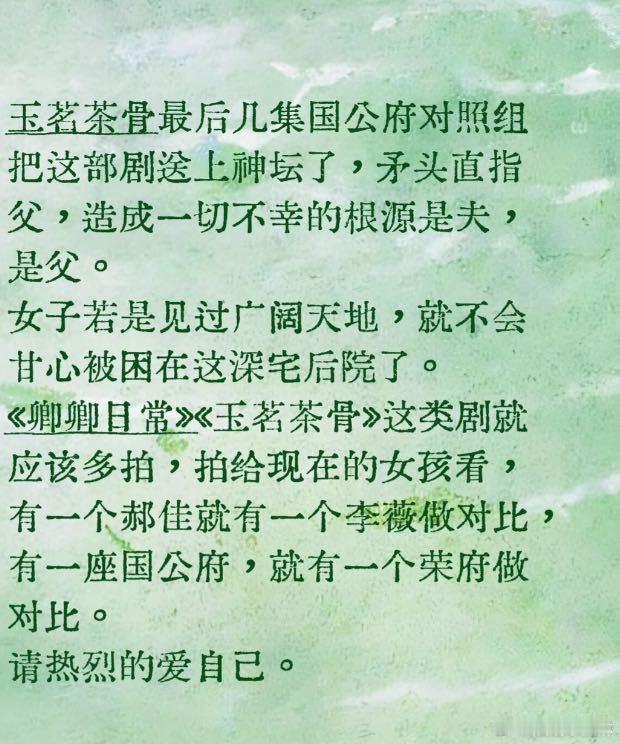 玉茗茶骨最后几集国公府对照组
把这部剧送上神坛了，矛头直指
父，造成一切不幸的根源是夫，
是父。
女子若是见过广阔天地，就不会
甘心被困在这深宅后院了。
《卿卿日常》《玉茗茶骨》这类剧就
应该多拍，拍给现在的女孩看，
有一个郝佳就有一个李薇做对比，
有一座国公府，就有一个荣府做
对比。
请热烈的爱自己。